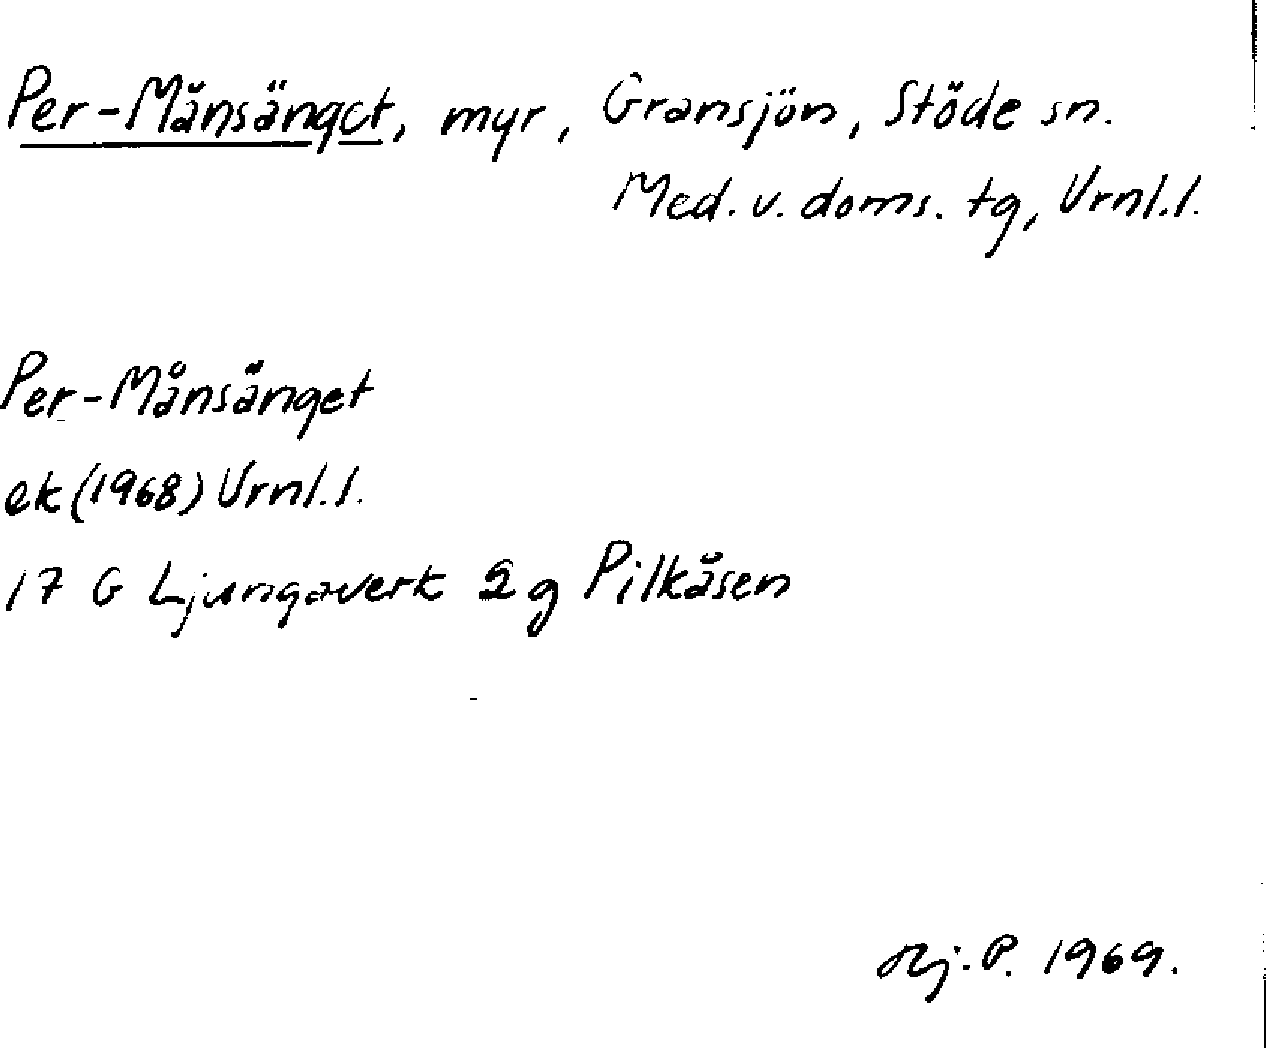 Per-Månsänget, myr, Gransjön, Stöde sn.
Med. v. doms. tg, Vrnl.l.
Per-Månsänget
ek (1968) Vrnl.l.
17 G Ljungaverk 2 g Pilkåsen
Hj. P. 1969.